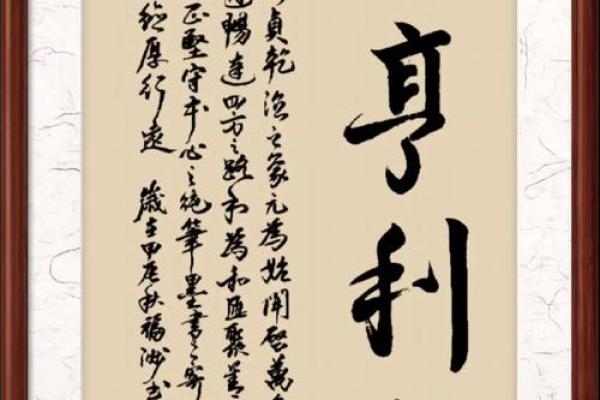 亨利
貞乾德之象元為始開啟萬
通暢達四方之路利為和匯聚善
正堅守本心之純筆墨書之寄
厚行遠 歲在甲辰秋福洲書